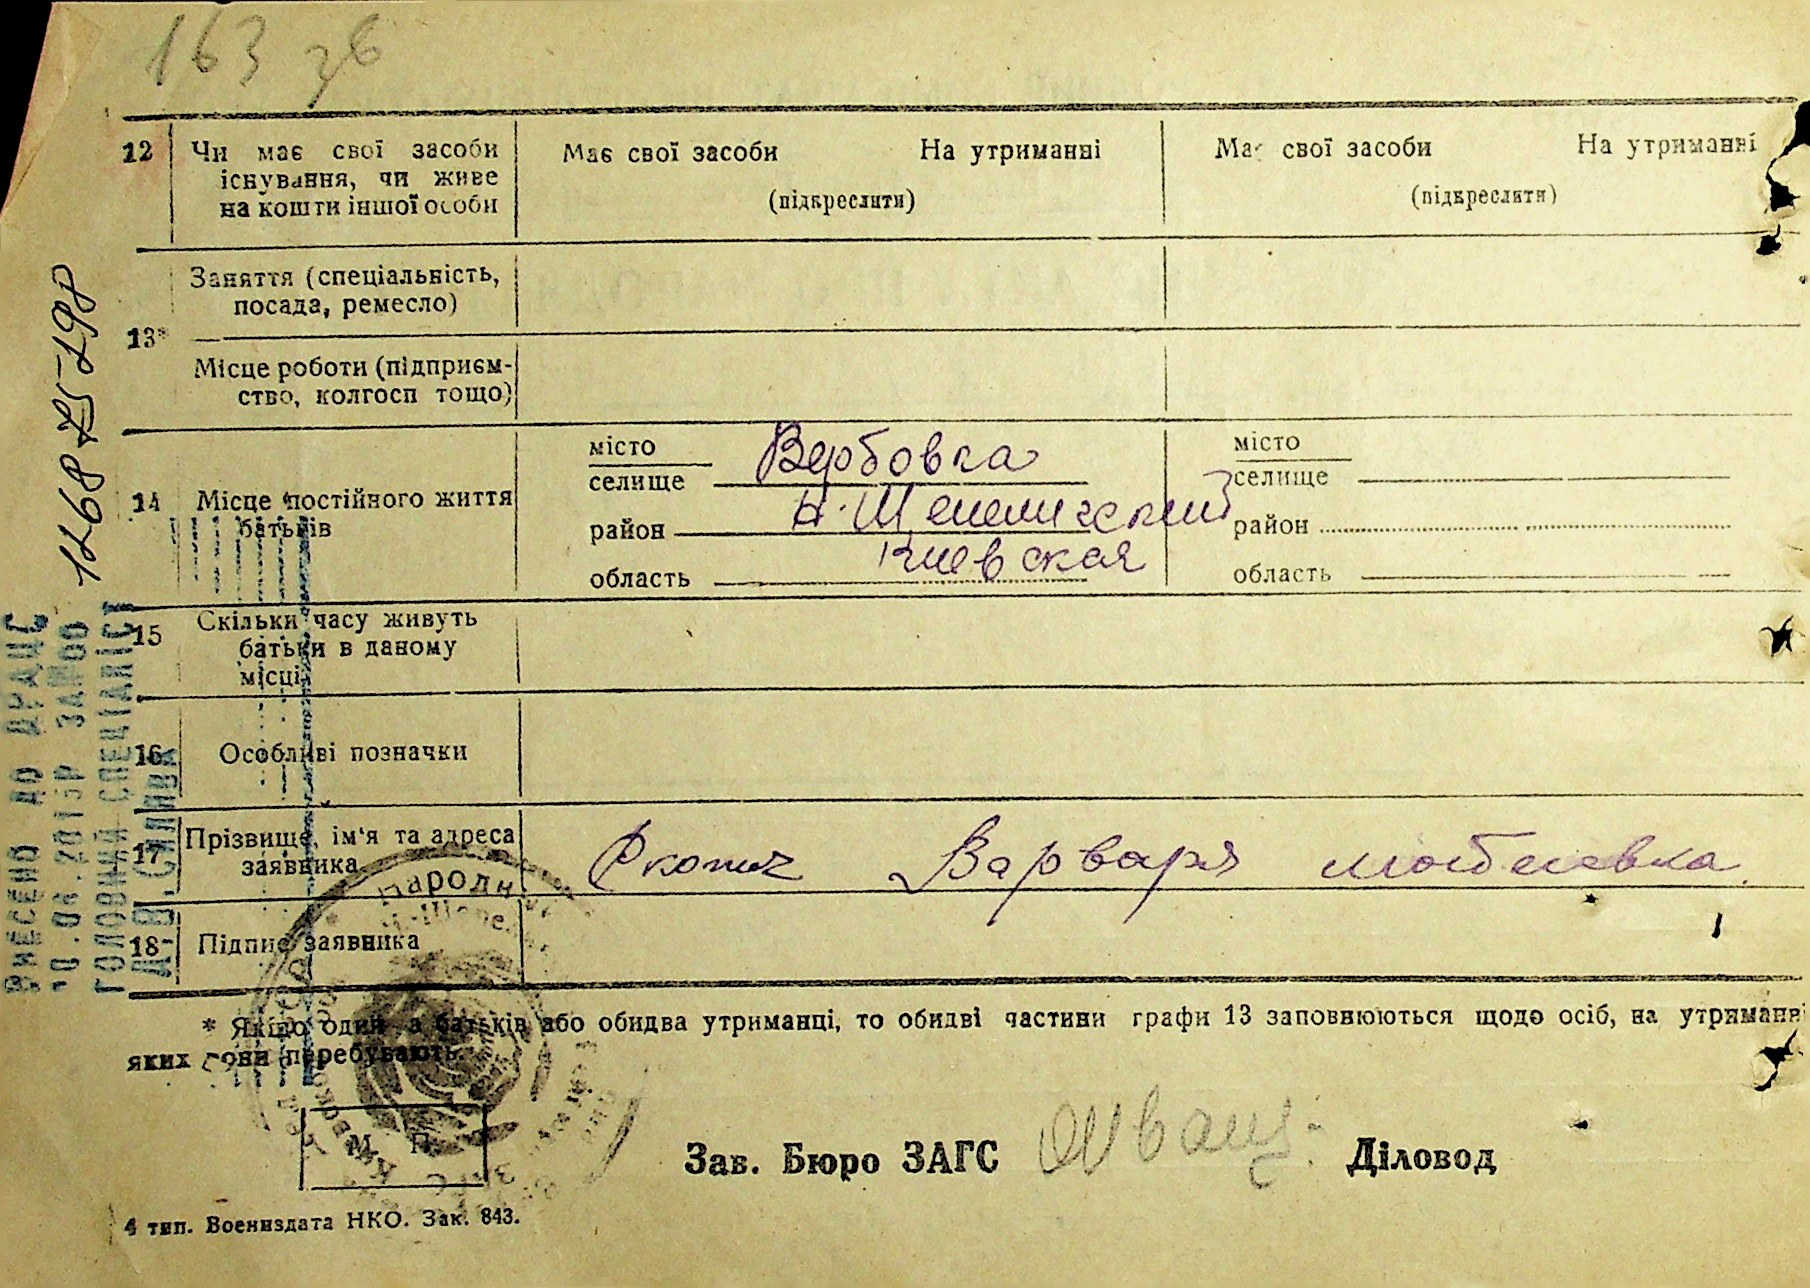 163 зв
12 Чи має свої засоби існування, чи живе на кошти іншої особи
Має свої засоби На утриманні
(підкреслити)
Має свої засоби На утриманні
(підкреслити)
13*
Заняття (спеціальність,
посада, ремесло)
Місце роботи (підприєм-
ство, колгосп тощо)
14 Місце постійного життя
батьків
місто
селище Вербовка
район Н. Шепеличский
область Киевская
місто
селище
район
область
15 Скільки часу живуть
батьки в даному
місці
16 Особливі позначки
17 Прізвище, ім'я та адреса
заявника
Варвара
18 Підпис заявника
* Якщо один з батьків або обидва утриманці, то обидві частини графи 13 заповнюються щодо осіб, на утриманні
яких вони перебувають.
М. П.
Зав. Бюро ЗАГС
Діловод
4 тип. Воениздата НКО. Зак. 843.
ВНЕСЕНО ДО ДРАЦС
ГОЛОВНИЙ СПЕЦІАЛІСТ